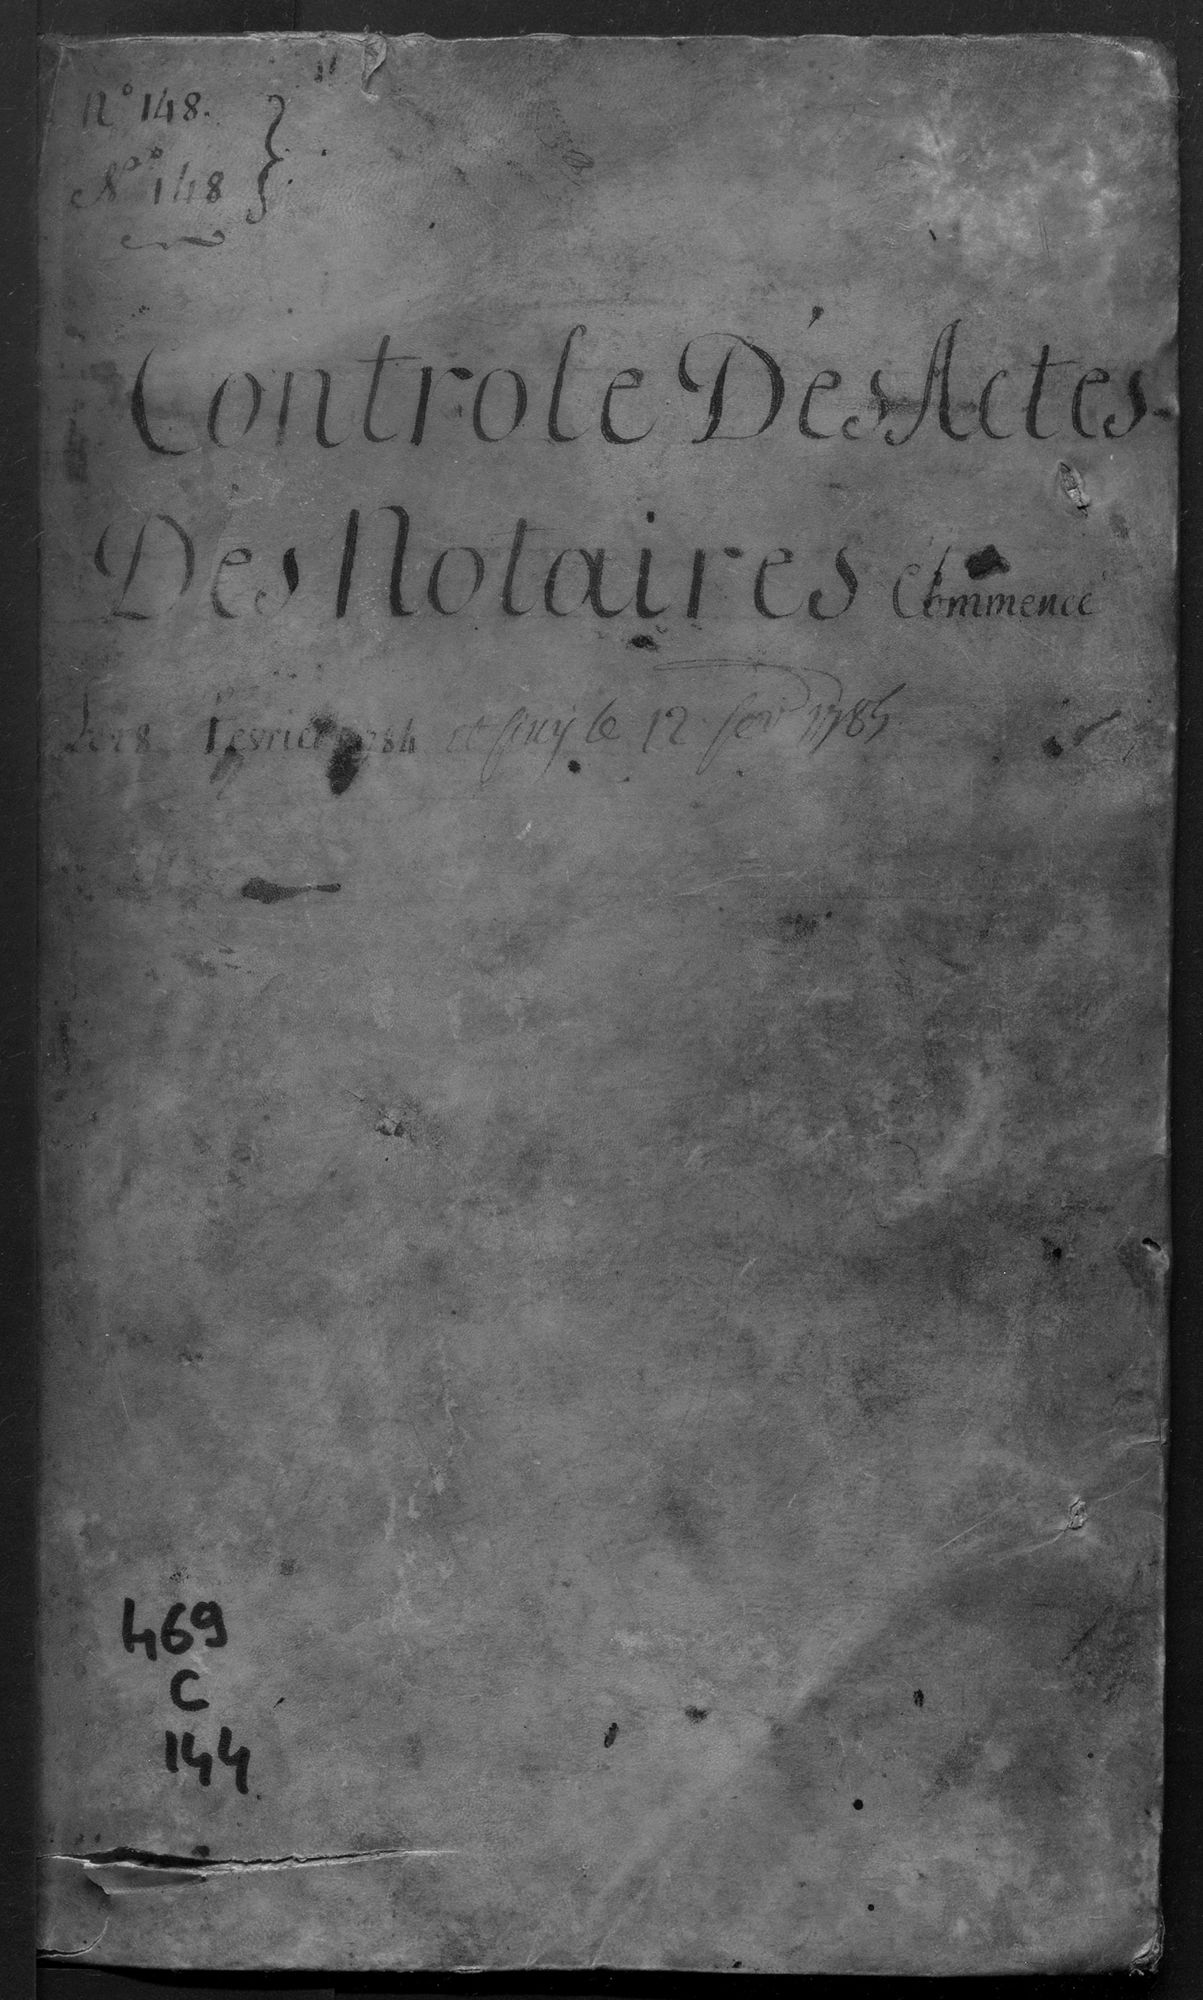 N° 148.
N° 148
Controle Des Actes
Des Notaires Commence
Le 28 Fevrier 1784 et finy le 12 fev 1785
469
C
144